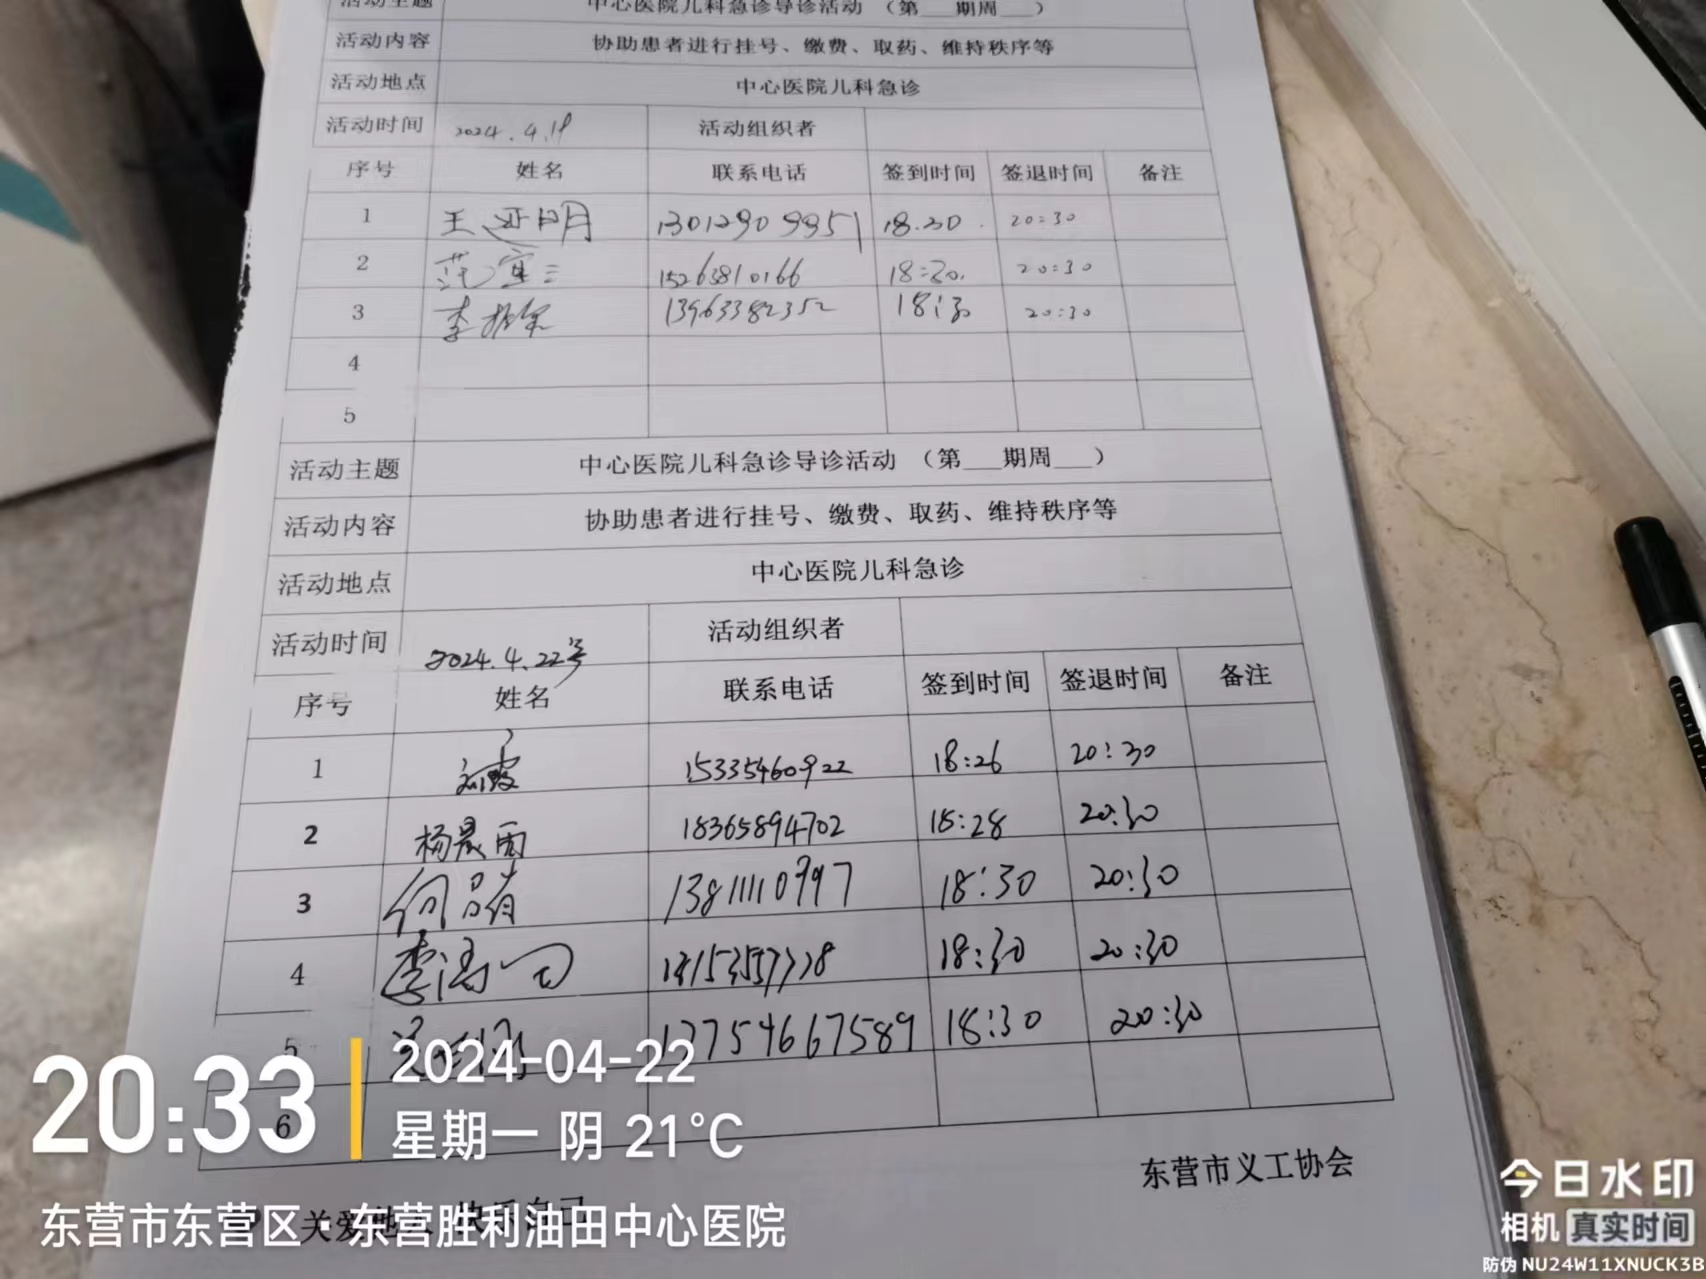 活动主题 中心医院儿科急诊导诊活动 （第___期周___）
活动内容 协助患者进行挂号、缴费、取药、维持秩序等
活动地点 中心医院儿科急诊
活动时间 2024.4.19 活动组织者
序号 姓名 联系电话 签到时间 签退时间 备注
1 王延明 13012909951 18.30 20:30
2 15263810166 18:30. 20:30
3 李振 13963382352 18:30 20:30
4
5
活动主题 中心医院儿科急诊导诊活动 （第___期周___）
活动内容 协助患者进行挂号、缴费、取药、维持秩序等
活动地点 中心医院儿科急诊
活动时间 2024.4.22号 活动组织者
序号 姓名 联系电话 签到时间 签退时间 备注
1 刘霞 15335460922 18:26 20:30
2 杨晨雨 18365894702 18:28 20:30
3 13811110997 18:30 20:30
4 李 18:30 20:30
5 13754667589 18:30 20:30
6
东营市义工协会
关爱他人 快乐自己
20:33
2024-04-22
星期一 阴 21°C
东营市东营区·东营胜利油田中心医院
今日水印
相机 真实时间
防伪 NU24W11XNUCK3B